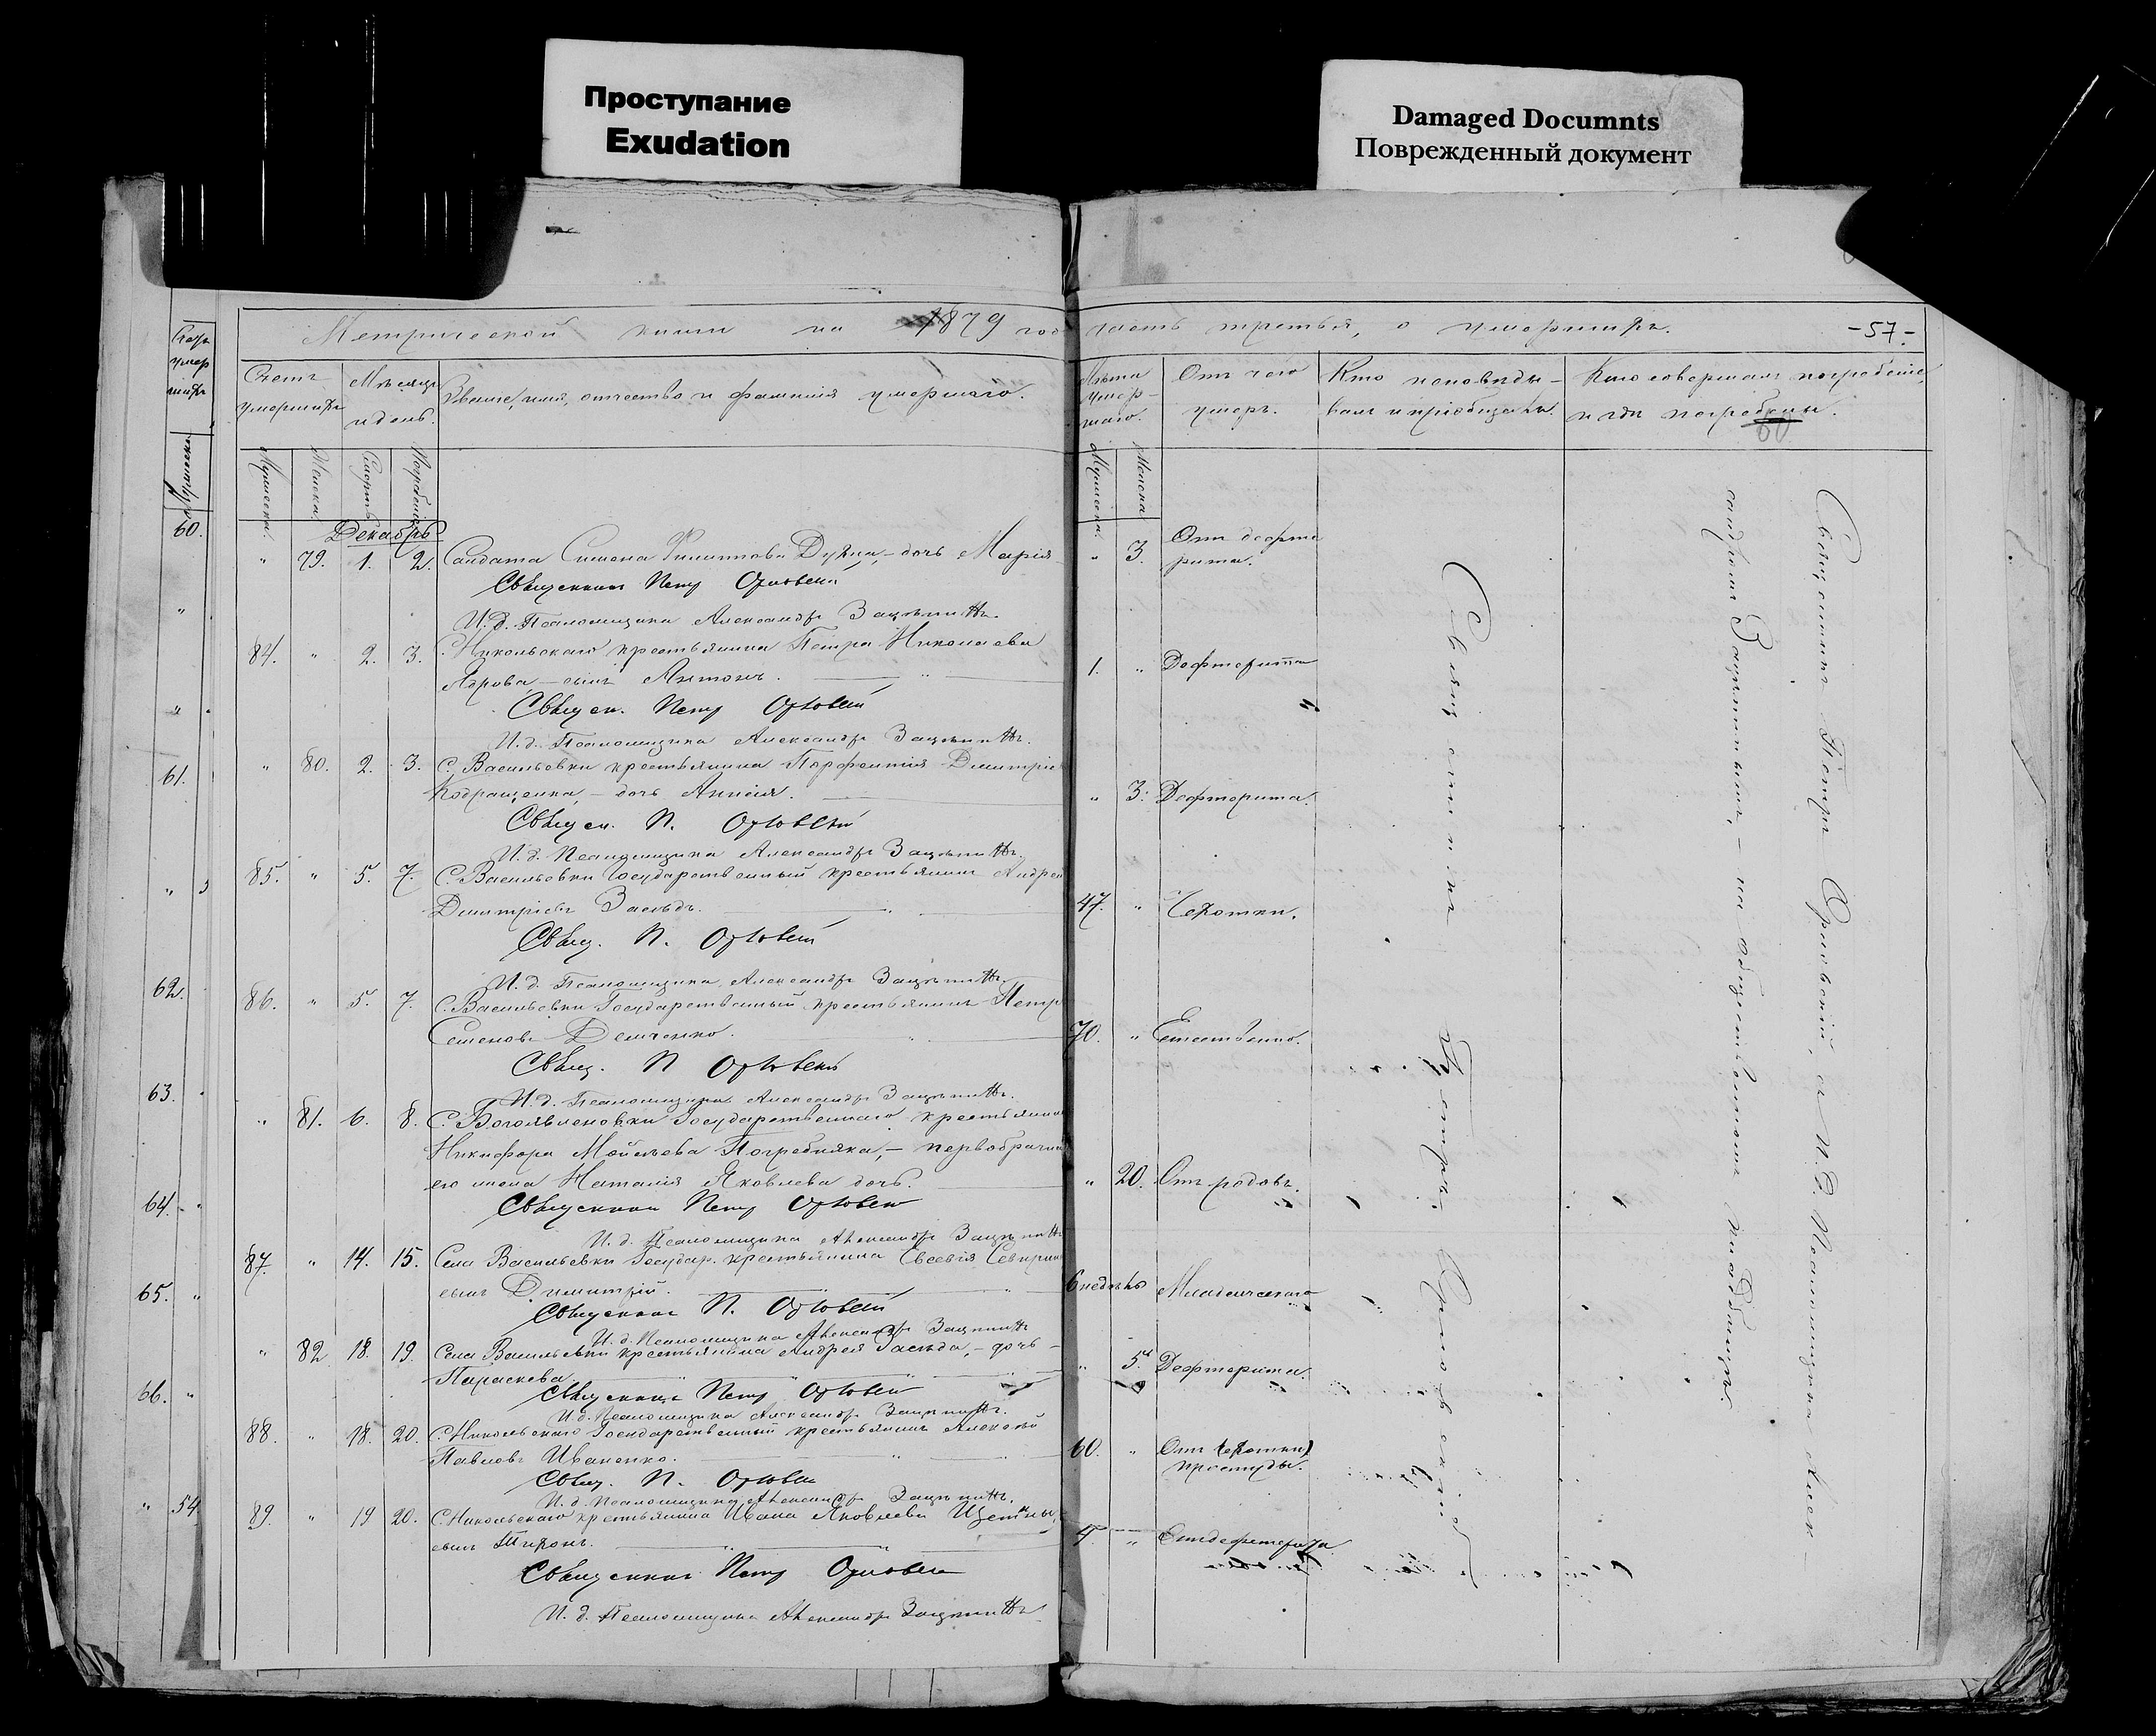 Проступание
Exudation
Damaged Documnts
Поврежденный документ
Метрической книги на 1879 год часть третья, о умершихъ. -57-
Счетъ умершихъ
Мѣсяцъ и день.
Званіе, имя, отчество и фамилія умершаго.
Лѣта умершаго.
Отъ чего умеръ.
Кто исповѣдывалъ и пріобщалъ.
Кто совершалъ погребеніе и гдѣ погребены.
60
Мужеска.
Женска.
Смерти
Погребенія
Мужеска.
Женска.
Декабрь
" 79. 1. 2. Солдата Симена Филиппова дочь Марія " 3. Отъ дефте
рита.
Священникъ Петръ Орловскій
И. д. Псаломщика Александръ
84. " 2. 3. С. Никольскаго крестьянина Петра Николаева
сынъ Антонъ. 1. " Дефтерита
Священ. Петръ Орловскій
И. д. Псаломщика Александръ
" 80. 2. 3. С. Васильевки крестьянина Димитріев
дочь Анисія. " 3. Дефтерита.
Священ. П. Орловскій
И. д. Псаломщика Александръ
85. " 5. 7. С. Васильевки Государственный крестьянинъ Андрей
Димитріевъ 47. " Чехотки.
Свящ. П. Орловскій
И. д. Псаломщика Александръ
86. " 5. 7. С. Васильевки Государственный крестьянинъ Петръ
Семеновъ Демченко. 70. " Естественно.
Свящ. П Орловскій
И. д. Псаломщика Александръ
" 81. 6. 8. С. Богоявленовки Государственнаго крестьянина
Никифора Мойсѣева Погребняка, – первобрачная
его жена Наталія Яковлева дочь. " 20. Отъ родовъ.
Священникъ Петръ Орловскій
И. д. Псаломщика Александръ
87. " 14. 15. Села Васильевки Государ. крестьянина Евсевія
сынъ Димитрій. 6 недѣль Младенческаго
Священникъ П. Орловскій
И. д. Псаломщика Александръ
" 82 18. 19. Села Васильевки крестьянина Андрея дочь
Параскева " 5. Дефтерита.
Священникъ Петръ Орловскій
И. д. Псаломщика Александръ
88. " 18. 20. С. Никольскаго Государственный крестьянинъ Алексѣй
Павловъ Иваненко. 60. " Отъ
простуды.
Свящ. П. Орловскій
И. д. Псаломщика Александръ
89. " 19 20. С. Никольскаго крестьянина Ивана Яковлева
сынъ Тихонъ. "
Священникъ Петръ Орловскій
И. д. Псаломщика Александръ
Священникъ Петръ Орловскій
Священникъ Петръ Орловскій, съ И. Д. Псаломщика Алек-
сандромъ на общественномъ кладбищѣ.
60.
61.
62.
63.
64.
65.
66.
54.